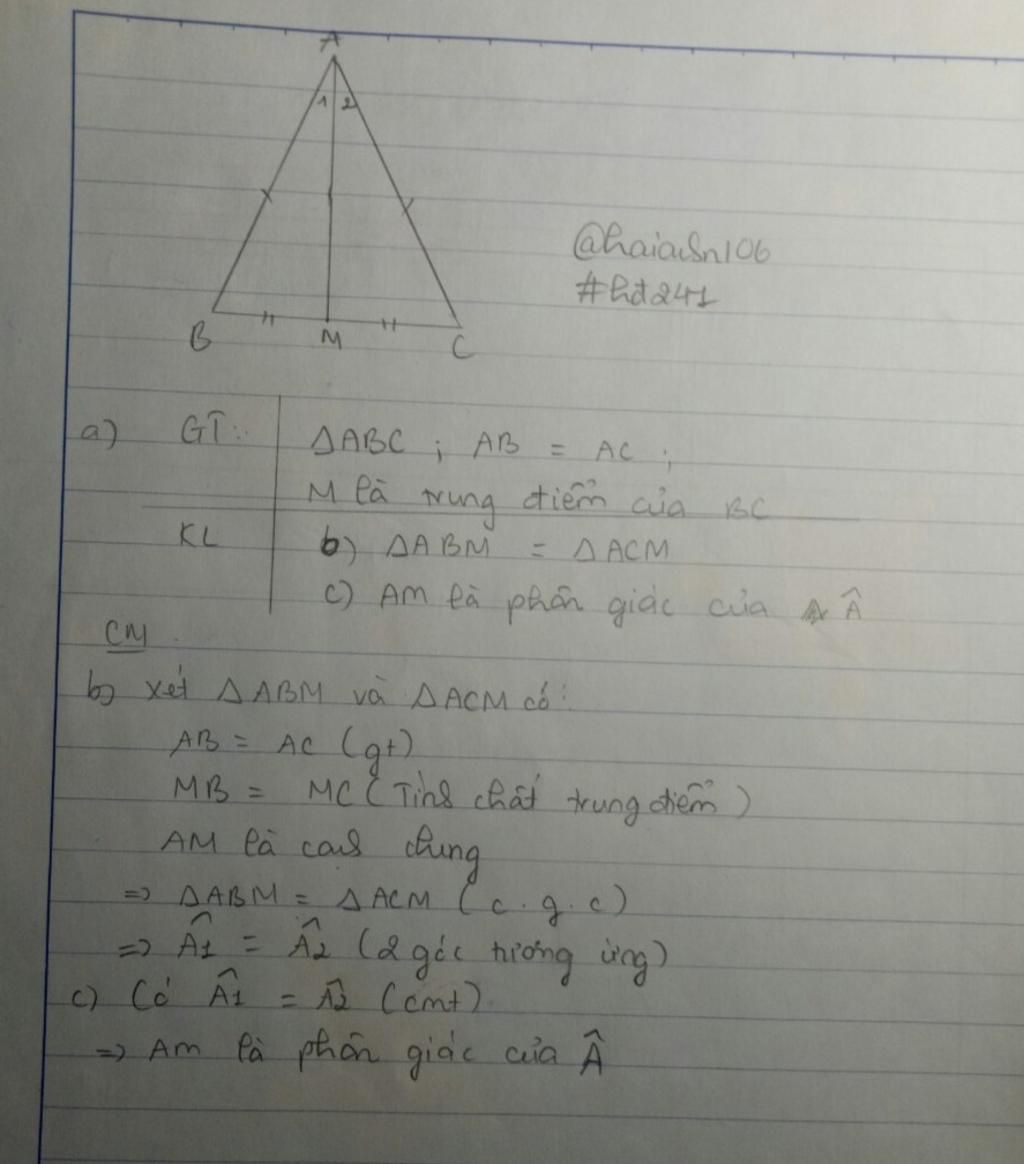 A
1 2
@haianh106
#hđ241
B M C
a) GT: ΔABC ; AB = AC ;
M là trung điểm của BC
KL b) ΔABM = ΔACM
c) AM là phân giác của Â
CM.
b) Xét ΔABM và ΔACM có:
AB = AC (gt)
MB = MC (Tính chất trung điểm)
AM là cạnh chung
=> ΔABM = ΔACM (c.g.c)
=> Â1 = Â2 (2 góc tương ứng)
c) Có Â1 = Â2 (cmt)
=> AM là phân giác của Â